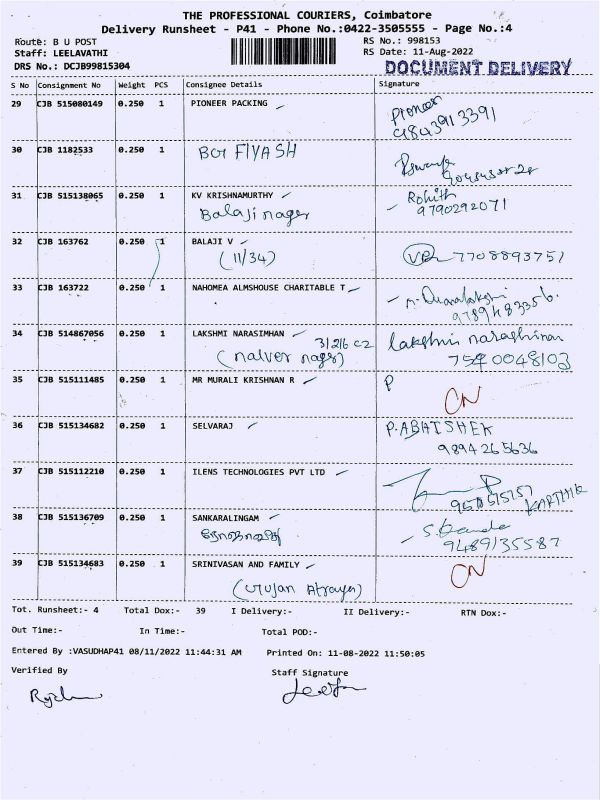 THE PROFESSIONAL COURIERS, Coimbatore
Delivery Runsheet - P41 - Phone No.:0422-3505555 - Page No.:4
Route: B U POST RS No.: 998153
Staff: LEELAVATHI RS Date: 11-Aug-2022
DRS No.: DCJB99815304 DOCUMENT DELIVERY
S No Consignment No Weight PCS Consignee Details Signature
29 CJB 515080149 0.250 1 PIONEER PACKING Pioneer
9843913391
30 CJB 1182533 0.250 1 BGT FIYASH
31 CJB 515138065 0.250 1 KV KRISHNAMURTHY Rohith
Balaji nager 9790292071
32 CJB 163762 0.250 1 BALAJI V 7708893751
(11/34)
33 CJB 163722 0.250 1 NAHOMEA ALMSHOUSE CHARITABLE T
9789483356
34 CJB 514867056 0.250 1 LAKSHMI NARASIMHAN 3/216 C2 lakshmi narashiman
(nalver nager) 7540048103
35 CJB 515111485 0.250 1 MR MURALI KRISHNAN R P
CN
36 CJB 515134682 0.250 1 SELVARAJ P.ABHISHEK
9894265636
37 CJB 515112210 0.250 1 ILENS TECHNOLOGIES PVT LTD
KARTHIK
38 CJB 515136709 0.250 1 SANKARALINGAM
9489135587
39 CJB 515134683 0.250 1 SRINIVASAN AND FAMILY CN
Tot. Runsheet:- 4 Total Dox:- 39 I Delivery:- II Delivery:- RTN Dox:-
Out Time:- In Time:- Total POD:-
Entered By :VASUDHAP41 08/11/2022 11:44:31 AM Printed On: 11-08-2022 11:50:05
Verified By Staff Signature